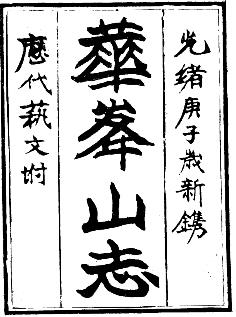 光緒庚子歲新鐫
華峯山志
歷代蓺文坿